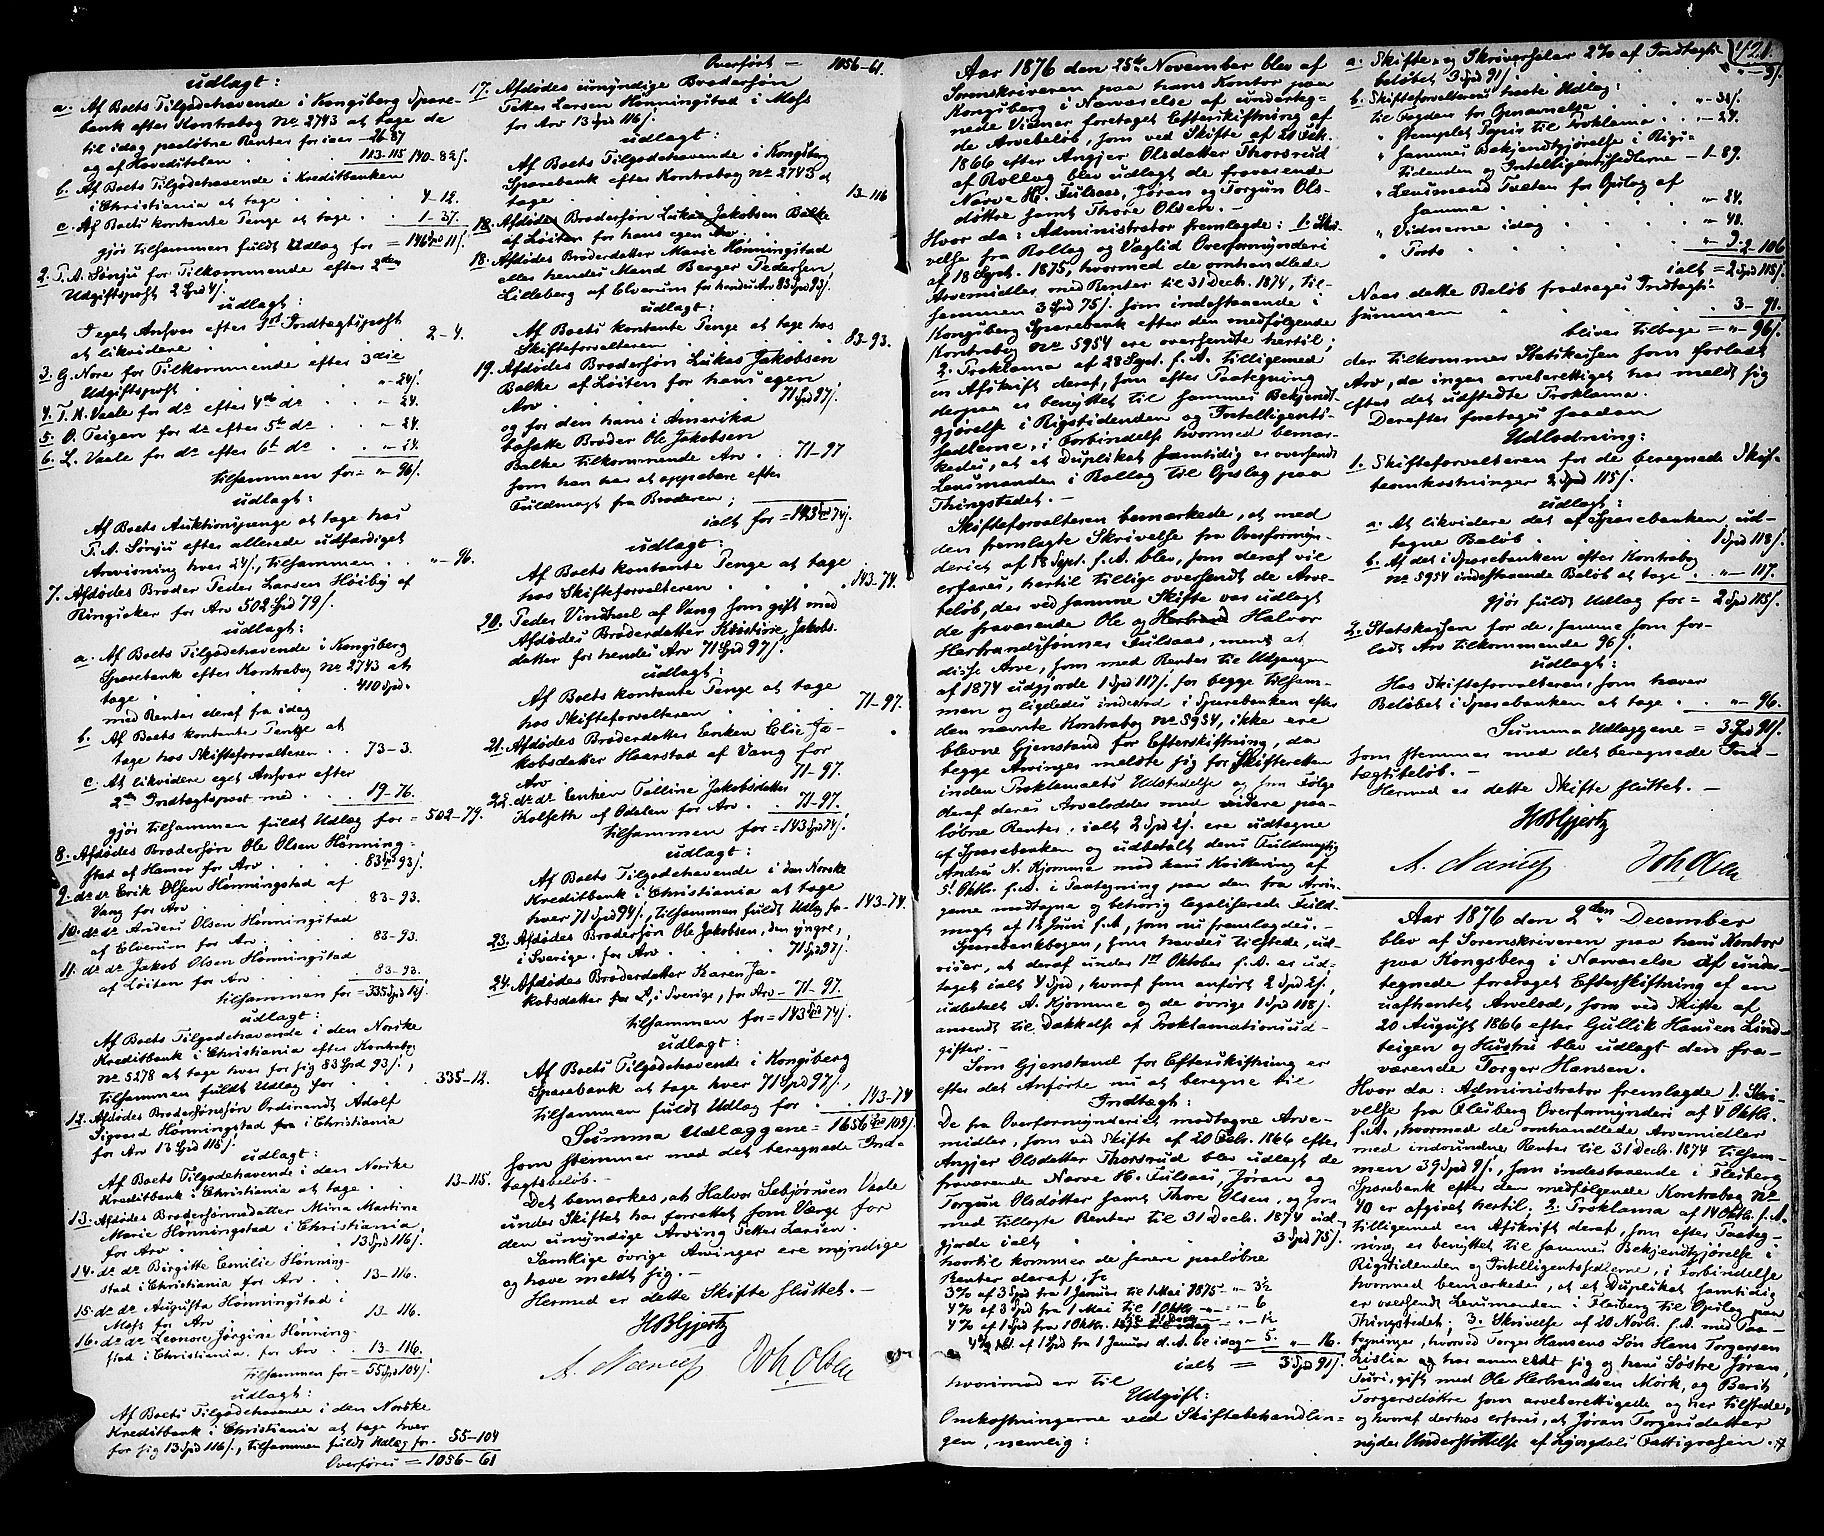 udlagt:
a. Af Boets Tilgodehavende i Kongsberg Spare-
bank efter Kontrabog No 2743 at tage de
til idag paaløbne Renter 26-87
og af Hovedstolen 113-115 140-82/.
b. Af Boets Tilgodehavende i Kreditbanken
i Christiania at tage 4-12.
c. Af Boets kontante Penge at tage 1-37.
gjør tilsammen fuldt Udlag for = 146 Spd 11/.
2. T. A. Sønju for Tilkommende efter 2den
Udgiftspost 2 Spd 4/.
udlagt:
I eget Ansvar efter Indtagtspost
at likvidere 2-4.
3. G. Nore for Tilkommende efter 3die
Udgiftspost "-24/.
4. T. K. Vaale for do efter 4de do "-24.
5. O. Teigen for do efter 5te do "-24.
6. L. Vaale for do efter 6te do "-24.
tilsammen for = "-96/.
udlagt:
Af Boets Auktionspenge at tage hos
T. A. Sønju efter allerede udfærdiget
Anvisning hver 24/., tilsammen "-96.
7. Afdødes Broder Peder Larsen Høiby af
Ringsaker for Arv 502 Spd 79/.
udlagt:
a. Af Boets Tilgodehavende i Kongsberg
Sparebank efter Kontrabog No 2743 at
tage 410 Spd "
med Renter deraf fra idag
b. Af Boets kontante Penge at
tage hos Skifteforvalteren 73-3.
c. At likvidere eget Ansvar efter
2den Indtagtspost med 19-76.
gjør tilsammen fuldt Udlag for = 502-79.
8. Afdødes Brodersøn Ole Olsen Hønning-
stad af Hamar for Arv 83 Spd 93/.
9. do do Erik Olsen Hønningstad af
Vang for Arv 83-93.
10. do do Anders Olsen Hønningstad
af Elverum for Arv 83-93.
11. do do Jakob Olsen Hønningstad
af Løiten for Arv 83-93.
tilsammen for = 335 Spd 12/.
udlagt:
Af Boets Tilgodehavende i den Norske
Kreditbank i Christiania efter Kontrabog
No 5278 at tage hver for sig 83 Spd 93/.,
tilsammen fuldt Udlag for 335-12.
12. Afdødes Brodersønsøn Ordinendt Adolf
Sigvard Hønningstad fra i Christiania
for Arv 13 Spd 115/.
udlagt:
Af Boets Tilgodehavende i den Norske
Kreditbank i Christiania at tage 13-115.
13. Afdødes Brodersønsdatter Mina Martine
Marie Hønningstad i Christiania,
for Arv 13 Spd 116/.
14. do do Birgitte Emilie Hønning-
stad i Christiania for Arv 13-116.
15. do do Augusta Hønningstad i
Moss for Arv 13-116.
16. do do Leonore Jørgine Hønning-
stad i Christiania for Arv 13-116.
tilsammen for = 55 Spd 104/.
udlagt:
Af Boets Tilgodehavende i den Norske
Kreditbank i Christiania at tage hver
for sig 13 Spd 116/., tilsammen fuldt Udlag for 55-104
Overføres = 1056-61
Overført — 1056-61.
17. Afdødes umyndige Brodersøn
Petter Larsen Hønningstad i Moss
for Arv 13 Spd 116/.
udlagt:
Af Boets Tilgodehavende i Kongsberg
Sparebank efter Kontrabog No 2743 at
tage 13-116
18. Afdødes Brodersøn Lukas Jakobsen Balke
af Løiten for hans egen Arv
18. Afdødes Broderdatter Marie Hønningstad
eller hendes Mand Berger Pedersen
Lilleberg af Elverum for hendes Arv 83 Spd 93/.
udlagt:
Af Boets kontante Penge at tage hos
Skifteforvalteren 83-93.
19. Afdødes Brodersøn Lukas Jakobsen
Balke af Løiten for hans egen
Arv 71 Spd 97/.
og for den hans i Amerika
bosatte Broder Ole Jakobsen
Balke tilkommende Arv 71-97
som han har at oppebære efter
Fuldmagt fra Broderen;
ialt for = 143 Spd 74/.
udlagt:
Af Boets kontante Penge at tage
hos Skifteforvalteren 143-74.
20. Peder Vindhsel af Vang som gift med
Afdødes Broderdatter Kristine Jakobs-
datter for hendes Arv 71 Spd 97/.
udlagt:
Af Boets kontante Penge at tage
hos Skifteforvalteren 71-97.
21. Afdødes Broderdatter Enken Elie Ja-
kobsdatter Haarstad af Vang for
Arv 71-97.
22. do do Enken Polline Jakobsdatter
Kolseth af Odalen for Arv 71-97.
tilsammen for = 143 Spd 74/.
udlagt:
Af Boets Tilgodehavende i den Norske
Kreditbank i Christiania at tage
hver 71 Spd 97/., tilsammen fuldt Udlæg for 143-74.
23. Afdødes Brodersøn Ole Jakobsen, den yngre,
i Sverige, for Arv 71 Spd 97/.
24. Afdødes Broderdatter Karen Ja-
kobsdatter i Sverige, for Arv 71-97.
tilsammen for = 143 Spd 74/.
udlagt:
Af Boets Tilgodehavende i Kongsberg
Sparebank at tage hver 71 Spd 97/.,
tilsammen fuldt Udlæg for 143-74
Summa Udlæggene = 1656 Spd 109/.
som stemmer med det beregnede Ind-
tægtsbeløb.—
Det bemærkes, at Halvor Sebjørnsen Vaale
under Skiftet har forrettet som Værge for
den umyndige Arving Petter Larsen.
Samtlige øvrige Arvinger ere myndige
og have meldt sig.—
Hermed er dette Skifte sluttet.—
HBGjertz
A. Narverud Joh Olsen
Aar 1876 den 25de November blev af
Sorenskriveren paa hans Kontor paa
Kongsberg i Nærværelse af underteg-
nede Vidner foretaget Efterskiftning af
de Arvebeløb, som ved Skifte af 20 Febr.
1866 efter Angjer Olsdatter Thorsrud
af Rollag blev udlagt de fraværende
Narve H. Fulsaas, Jøran og Torgun Ols-
døttre samt Thore Olsen.—
Hvor da: Administrator fremlagde: 1. Skri-
velse fra Rollag og Væglid Overformynderi
af 18 Sept. 1875, hvormed de omhandlede
Arvemidler med Renter til 31 Decb. 1874, til-
sammen 3 Spd 75/. som indestaaende i
Kongsberg Sparebank efter den medfølgende
Kontrabog No 5954 ere oversendte hertil;
2. Proklama af 28 Sept. f.A. tilligemed
en Afskrift deraf, som efter Paategning
derpaa er benyttet til sammes Bekjendt-
gjørelse i Rigstidenden og Intelligents-
sedlerne, i Forbindelse hvormed bemær-
kedes, at et Duplikat samtidig er oversendt
Lensmanden i Rollag til Opslag paa
Thingstedet.—
Skifteforvalteren bemærkede, at med
den fremlagte Skrivelse fra Overformyn-
deriet af 18 Sept. f.A. blev, som deraf vil
erfares, hertil tillige oversendt de Arve-
beløb, der ved samme Skifte var udlagt
de fraværende Ole og Herbrand Halvor
Herbrandssønner Fulsaas, mens at
disse Arve, som med Renter til Udgangen
af 1874 udgjorde 1 Spd 117/. for begge tilsam-
men og ligeledes indestod i Sparebanken efter
den nævnte Kontrabog No 5954, ikke ere
blevne Gjenstand for Efterskiftning, da
begge Arvinger meldte sig for Skifteretten
inden Proklamaets Udstedelse og som Følge
deraf deres Arvelodder med videre paa-
løbne Renter, ialt 2 Spd 2/. ere udtagne
af Sparebanken og udbetalt deres Fuldmægtig
Andres N. Kjomme med hans Kvittering af
5 Oktbr. f.A. i Paategning paa den fra Arvin-
gerne modtagne og behørig legaliserede Fuld-
magt af 12 Juni f.A., som nu fremlagdes.—
Sparebankbogen, som havdes tilstede, ud-
viser, at deraf under 1ste Oktober f.A. er ud-
taget ialt 4 Spd, hvoraf som anført 2 Spd 2/.,
udbetalt A. Kjomme og de øvrige 1 Spd 118/.
anvendt til Dækkelse af Proklamationsud-
gifter.—
Som Gjenstand for Efterskiftning er
efter det Anførte nu at beregne til
Indtægt:
De fra Overformynderiet modtagne Arve-
midler, som ved Skifte af 20 Febr. 1866 efter
Angjer Olsdatter Thorsrud blev udlagt de
fraværende Narve H. Fulsaas, Jøran og
Torgun Olsdøttre samt Thore Olsen, og som
med tillagte Renter til 31 Decb. 1874 ud-
gjorde ialt 3 Spd 75/.
hvortil kommer de senere paaløbne
Renter deraf,
3% af 3 Spd fra 1 Januar til 1 Mai 1875 - " - 3½
4% af 3 Spd fra 1 Mai til 1 Oktbr. - " - 6
4% af 1 Spd fra 1 Oktbr. " - 1½
4% af 1 Spd fra 1 Januar d. A. til idag - 5. "-16.
ialt = 3 Spd 91/.
hvorimod er til
Udgift:
Omkostningerne ved Skiftebehandlin-
gen, nemlig:
421
a. Skifte- og Skriverselar 2% af Indtægts-
beløbet 3 Spd 91/. "-9/.
b. Skifteforvalterens havte Udlæg:
til Fogden for Gjenanelse "-31/.
" stemplet Papir til Proklama "-24.
" sammes Bekjendtgjørelse i Rigs-
tidenden og Intelligentssedlerne - 1-89.
" Lensmand Tveten for Opslag af
samme "-24.
" Vidnerne idag "-40.
" Porto "-9. 2-106
ialt = 2 Spd 115/.
Naar dette Beløb fradrages Indtægts-
summen 3-91.
bliver tilbage = "-96/.
der tilkommer Statskassen som forladt
Arv, da ingen arveberettiget har meldt sig
efter det udstedte Proklama.
Derefter foretages saadan
Udlodning:
1. Skifteforvalteren for de beregnede Skif-
teomkostninger 2 Spd 115/.
udlagt:
a. At likvidere det af Sparebanken ud-
tagne Beløb 1 Spd 118/.
b. Af det i Sparebanken efter Kontrabog
No 5954 indestaaende Beløb at tage "-117.
gjør fuldt Udlæg for = 2 Spd 115/.
2. Statskassen for de, samme som for-
ladt Arv tilkommende 96/.
udlagt:
Hos Skifteforvalteren, som hæver
Beløbet i Sparebanken at tage "-96.
Summa Udlæggene = 3 Spd 91/.
som stemmer med det beregnede Ind-
tægtsbeløb.—
Hermed er dette Skifte sluttet.—
HBGjertz
A. Narverud Joh Olsen
Aar 1876 den 2den December
blev af Sorenskriveren paa hans Kontor
paa Kongsberg i Nærværelse af under-
tegnede foretaget Efterskiftning af en
uafhentet Arvelod, som ved Skifte af
20 August 1866 efter Gullik Hansen Lind-
teigen og Hustru blev udlagt den fra-
værende Torger Hansen.
Hvor da: Administrator fremlagde 1. Skri-
velse fra Flesberg Overformynderi af 4 Oktbr.
f.A., hvormed de omhandlede Arvemidler
med indvundne Renter til 31 Decb. 1874 tilsam-
men 39 Spd 9/., som indestaaende i Flesberg
Sparebank efter den medfølgende Kontrabog No
40 er afgivet hertil; 2. Proklama af 14 Oktbr. f.A.
tilligemed en Afskrift deraf, som efter Paateg-
ning er benyttet til sammes Bekjendtgjørelse i
Rigstidenden og Intelligentssedlerne, i Forbindelse
hvormed bemærkedes, at et Duplikat samtidig
er oversendt Lensmanden i Flesberg til Opslag paa
Thingstedet; 3. Skrivelse af 20 Novbr. f.A. med Paa-
tegninger, hvorved Torger Hansens Søn Hans Torgersen
Lislia og har anmeldt sig og hans Søstre Jøran,
Turi, gift med Ole Herbrandsen Mørk, og Berit
Torgersdøttre som arveberettigede og her tilstede,
og hvoraf derhos erfares, at Jøran Torgersdatter
nyder Understøttelse af Lyngdals Fattigvæsen.